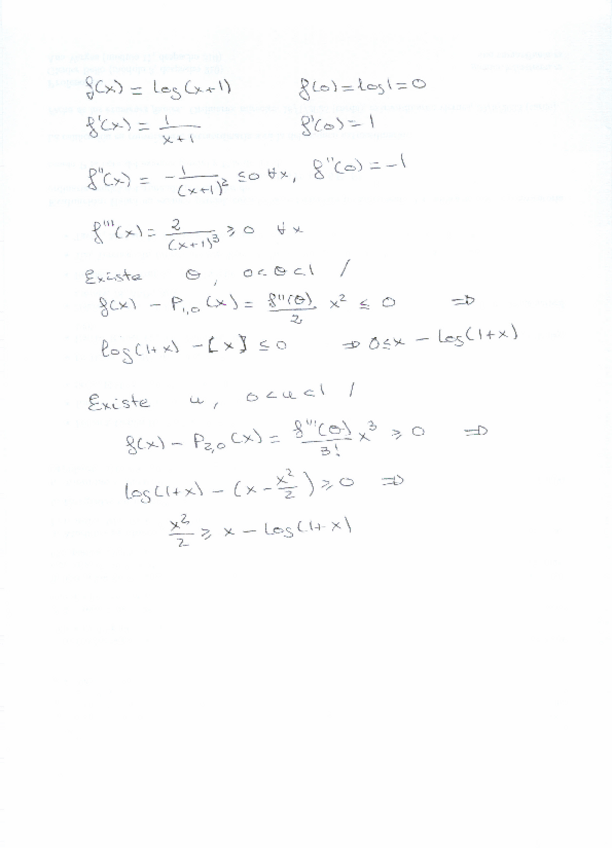 f(x) = log(x+1) f(0) = log1 = 0
f'(x) = 1/(x+1) f'(0) = 1
f''(x) = - 1/(x+1)² ≤ 0 ∀x, f''(0) = -1
f'''(x) = 2/(x+1)³ ≥ 0 ∀x
Existe θ, 0<θ<1 /
f(x) - P₁,₀(x) = f''(θ)/2 x² ≤ 0 ⇒
log(1+x) - [x] ≤ 0 ⇒ 0≤x - log(1+x)
Existe u, 0<u<1 /
f(x) - P₂,₀(x) = f'''(θ)/3! x³ ≥ 0 ⇒
log(1+x) - (x - x²/2) ≥ 0 ⇒
x²/2 ≥ x - log(1+x)